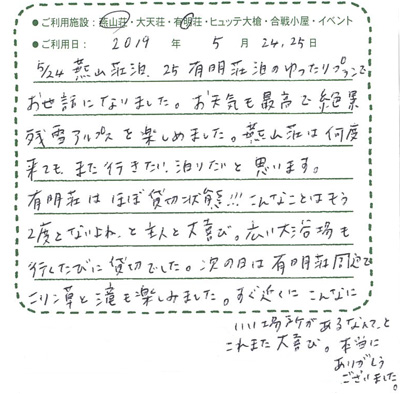 ●ご利用施設：燕山荘・大天荘・有明荘・ヒュッテ大槍・合戦小屋・イベント
●ご利用日：2019年5月24,25日
5/24 燕山荘泊、25 有明荘泊のゆったりプランで
お世話になりました。お天気も最高で絶景
残雪アルプスを楽しめました。燕山荘は何度
来ても、また行きたい、泊りだと思います。
有明荘はほぼ貸切状態!!! こんなことはもう
2度とないよね、と主人と大喜び。広い大浴場も
行くたびに貸切でした。次の日は有明荘周辺で
ニリン草と滝も楽しみました。すぐ近くにこんなに
いい場所があるなんて、と
これまた大喜び。本当に
ありがとう
ございました。